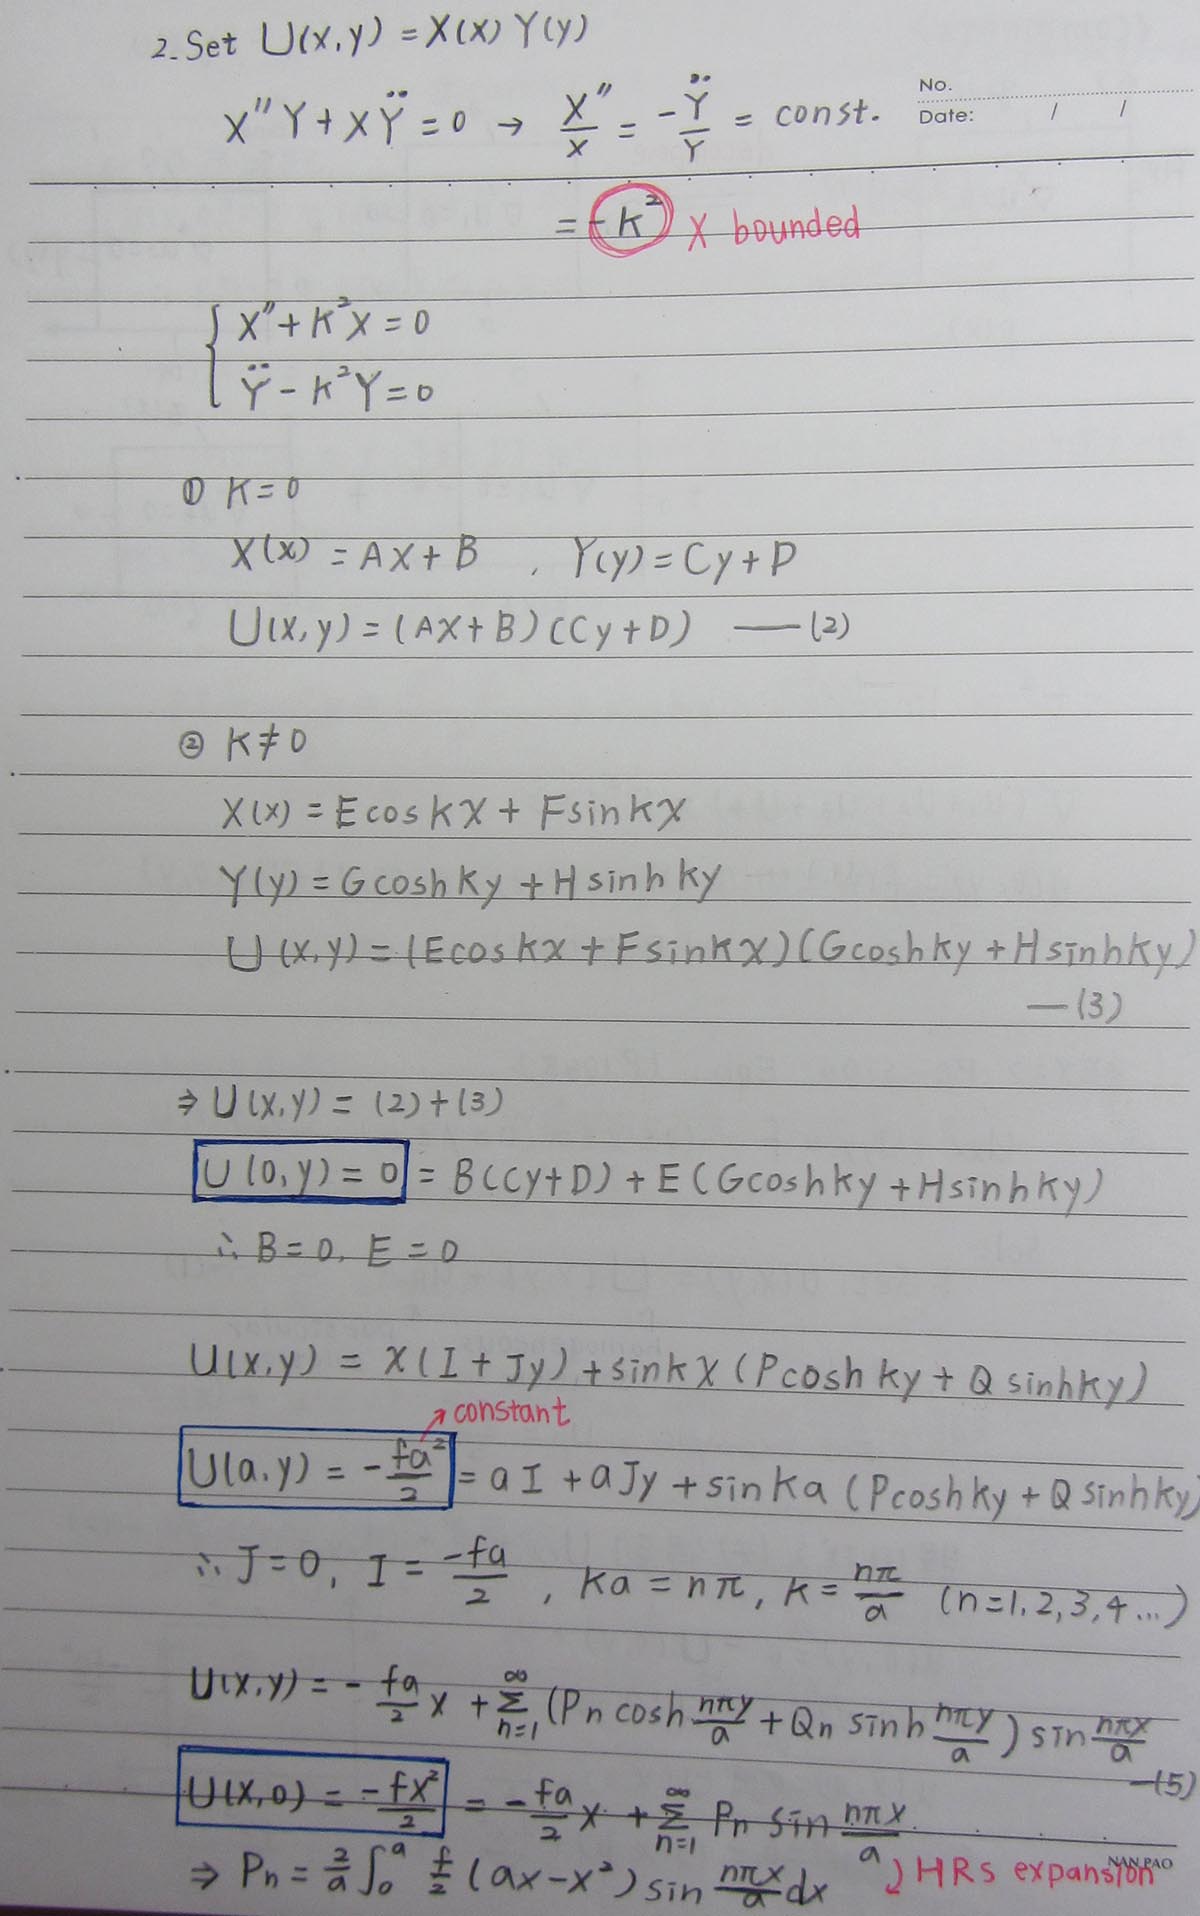 2. Set U(x,y) = X(x) Y(y)
No.
X″Y + XŸ = 0 → X″/X = -Ÿ/Y = const.
Date: / /
= -k² X bounded
{ X″ + k²X = 0
Ÿ - k²Y = 0
① k = 0
X(x) = Ax + B , Y(y) = Cy + D
U(x,y) = (Ax + B)(Cy + D) —(2)
② k ≠ 0
X(x) = E cos kx + F sin kx
Y(y) = G cosh ky + H sinh ky
U(x,y) = (E cos kx + F sin kx)(G cosh ky + H sinh ky)
—(3)
⇒ U(x,y) = (2) + (3)
U(0,y) = 0 = B(Cy + D) + E(G cosh ky + H sinh ky)
∴ B = 0, E = 0
U(x,y) = x(I + Jy) + sin kx (P cosh ky + Q sinh ky)
↗ constant
U(a,y) = -fa²/2 = aI + aJy + sin ka (P cosh ky + Q sinh ky)
∴ J = 0, I = -fa/2 , ka = nπ, k = nπ/a (n = 1, 2, 3, 4 ...)
U(x,y) = -fa/2 x + ∑_{n=1}^{∞} (Pn cosh nπy/a + Qn sinh nπy/a) sin nπx/a
—(5)
U(x,0) = -fx²/2 = -fa/2 x + ∑_{n=1}^{∞} Pn sin nπx/a
NAN PAO
⇒ Pn = 2/a ∫₀ᵃ f/2 (ax - x²) sin nπx/a dx HRs expansion